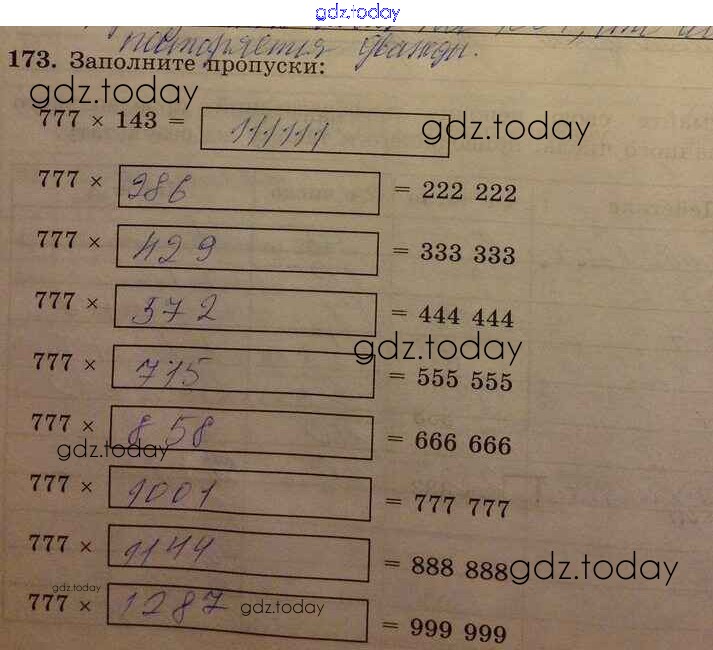 gdz.today
повторяется дважды.
173. Заполните пропуски:
gdz.today
777 × 143 = 111111
gdz.today
777 × 286 = 222 222
777 × 429 = 333 333
777 × 572 = 444 444
gdz.today
777 × 715 = 555 555
777 × 858 = 666 666
gdz.today
777 × 1001 = 777 777
777 × 1144 = 888 888
gdz.today
gdz.today
777 × 1287 = 999 999
gdz.today